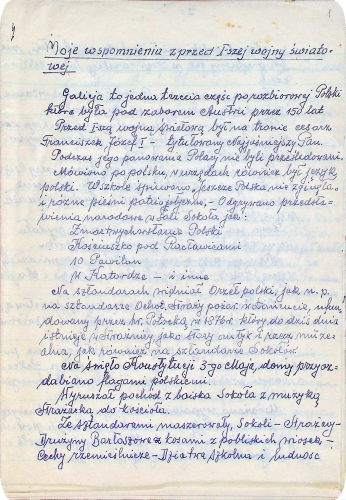 1
Moje wspomnienia z przed I-szej wojny świato-
wej
Galicja to jedna trzecia część porozbiorowej Polski
która była pod zaborem Austrii przez 150 lat
Przed I-szą wojną światową był na tronie cesarz
Franciszek Józef I - tytułowany Najjaśniejszy Pan.
Podczas jego panowania Polacy nie byli prześladowani.
Mówiono po polsku, w urzędach również był język
polski. W szkole śpiewano "Jeszcze Polska nie zginęła"
i różne pieśni patriotyczne - Odgrywano przedsta-
wienia narodowe w Sali Sokoła jak:
Zmartwychwstanie Polski
Kościuszko pod Racławicami
10 Pawilon
W Katordze - i inne
Na sztandarach widniał Orzeł polski, jak n.p.
na sztandarze Ochot. Straży pożar. w Łańcucie, ufun-
dowany przez hr. Potocką w 1876 r. który do dziś dnia
istnieje w Strażnicy jako stary antyk i rzecz muze-
alna, jak również na sztandarze Sokołów.
Na święto Konstytucji 3-go Maja, domy przyoz-
dabiano flagami polskiemi.
Wyruszał pochód z boiska Sokoła z muzyką
Strażacką do kościoła.
Ze sztandarami maszerowały, Sokoli - Strażacy -
Drużyny Bartoszowe z kosami z pobliskich wiosek -
Cechy rzemieślnicze - Dziatwa Szkolna i ludność